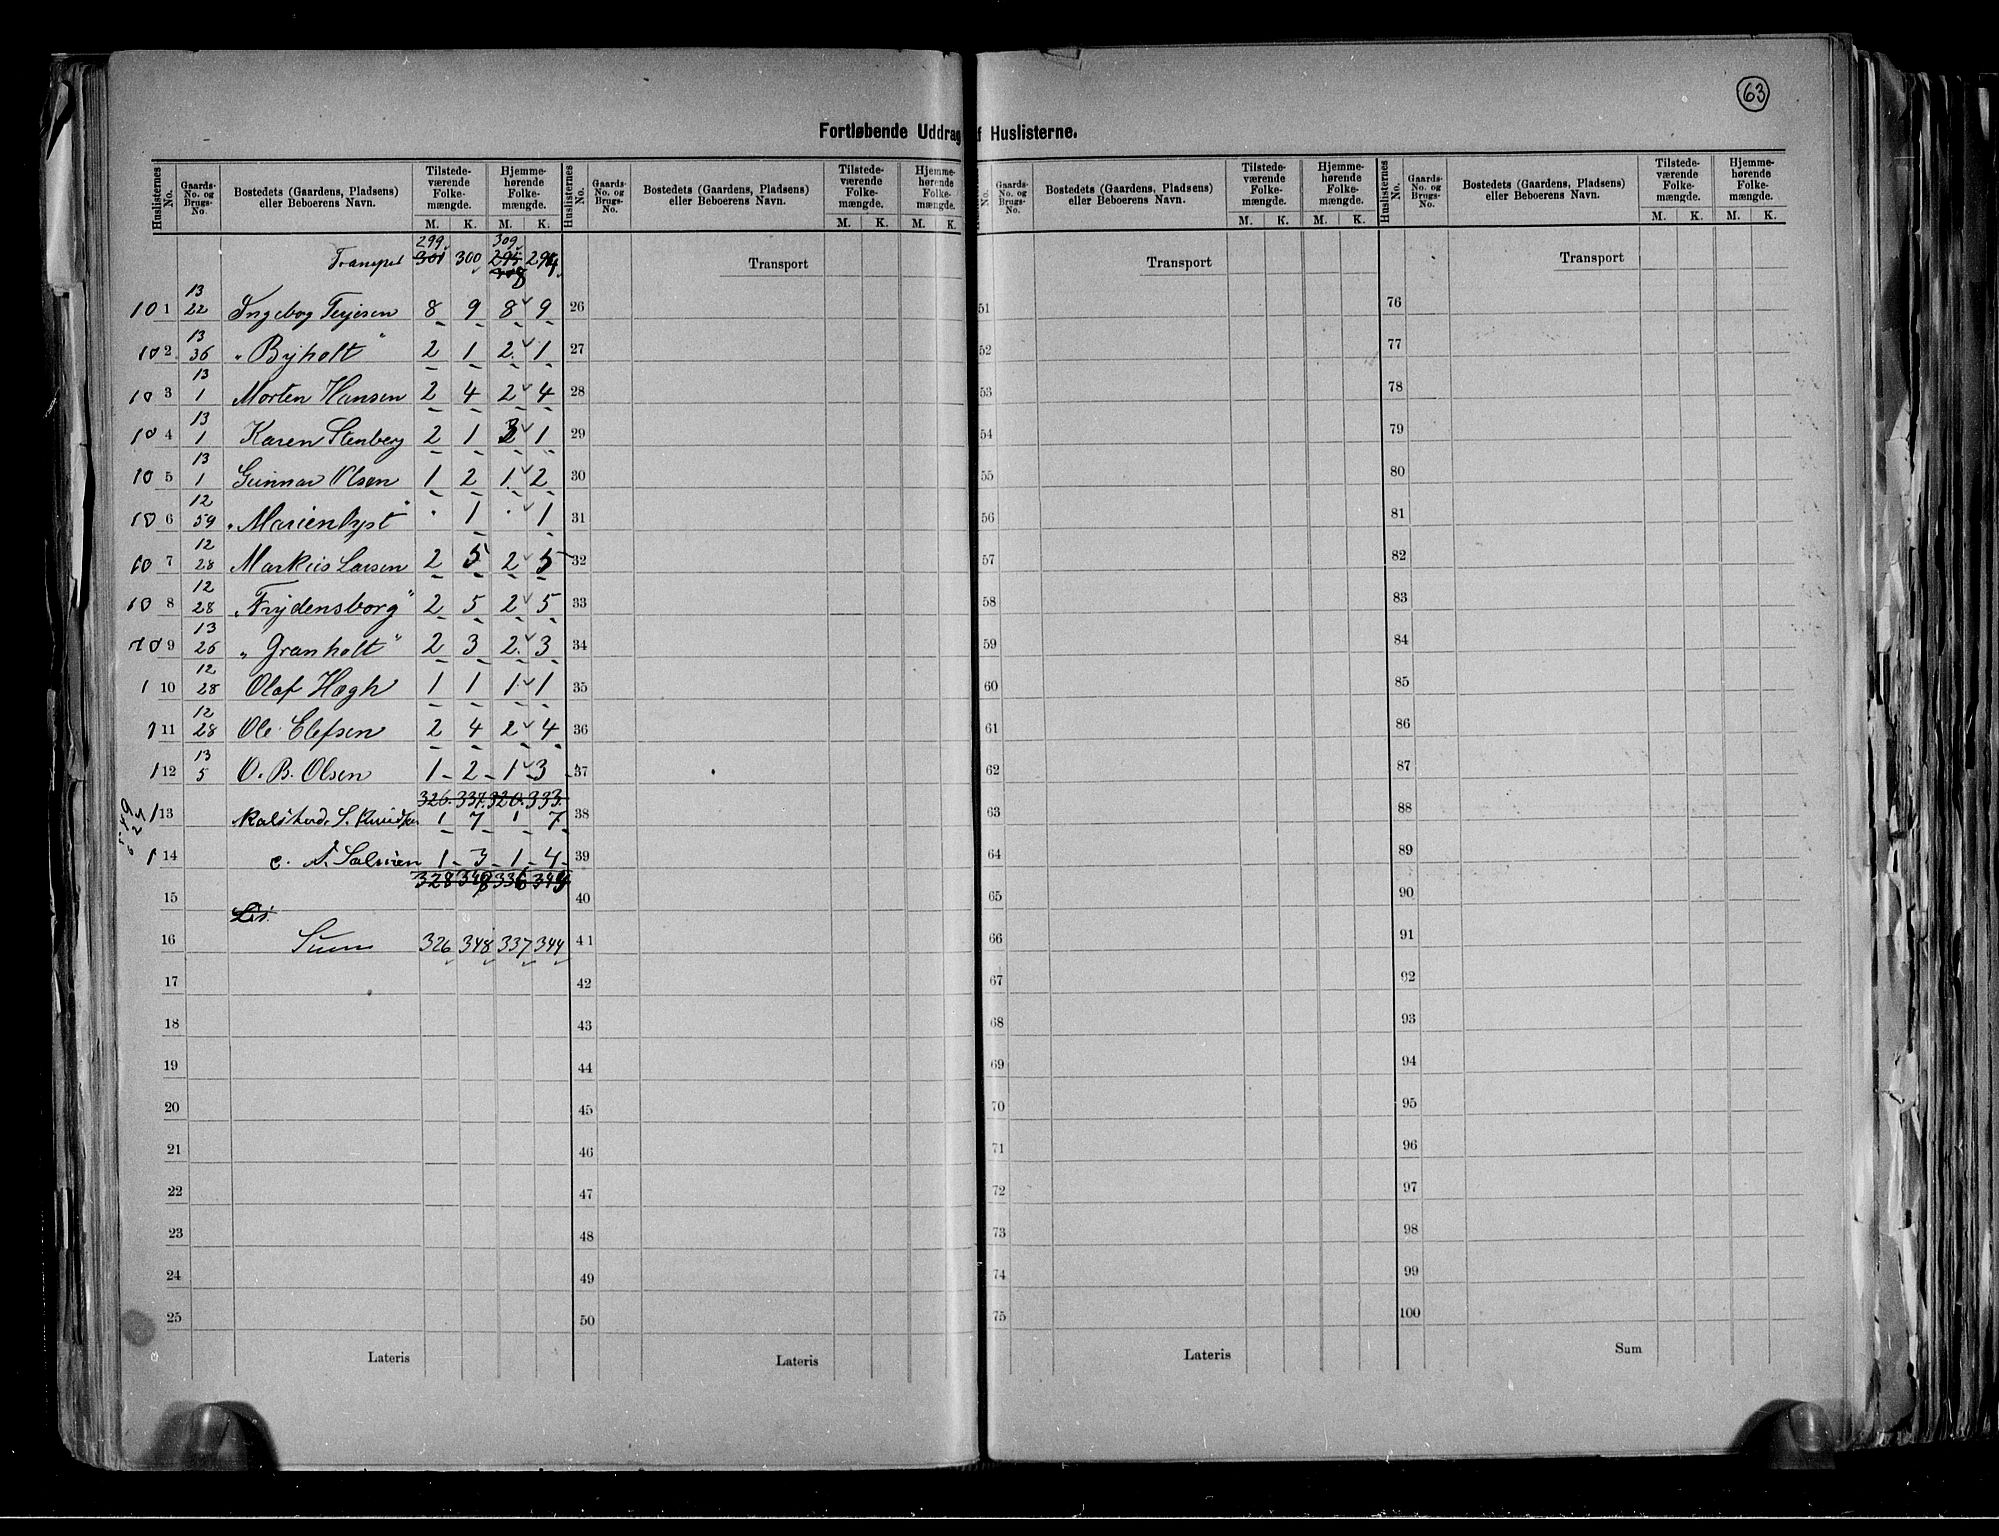 63
Fortløbende Uddrag f Huslisterne.
Huslisternes No. Gaards-No. og Brugs-No. Bostedets (Gaardens, Pladsens) eller Beboerens Navn. Tilstedeværende Folkemængde. M. K. Hjemmehørende Folkemængde. M. K.
Huslisternes No. Gaards-No. og Brugs-No. Bostedets (Gaardens, Pladsens) eller Beboerens Navn. Tilstedeværende Folkemængde. M. K. Hjemmehørende Folkemængde. M. K.
No. Gaards-No. og Brugs-No. Bostedets (Gaardens, Pladsens) eller Beboerens Navn. Tilstedeværende Folkemængde. M. K. Hjemmehørende Folkemængde. M. K.
Huslisternes No. Gaards-No. og Brugs-No. Bostedets (Gaardens, Pladsens) eller Beboerens Navn. Tilstedeværende Folkemængde. M. K. Hjemmehørende Folkemængde. M. K.
299 309
301 300 295 294
Transport Transport Transport
10 1 13 22 Ingebog Terjesen 8 9 8 9 26 51 76
10 2 13 36 "Byholt" 2 1 2 1 27 52 77
10 3 13 1 Morten Hansen 2 4 2 4 28 53 78
10 4 13 1 Karen Stenberg 2 1 3 1 29 54 79
10 5 13 1 Gunnar Olsen 1 2 1 2 30 55 80
10 6 12 59 "Marienlyst" . 1 . 1 31 56 81
10 7 12 28 Markus Larsen 2 5 2 5 32 57 82
10 8 12 28 "Frydensborg" 2 5 2 5 33 58 83
10 9 13 26 "Granholt" 2 3 2 3 34 59 84
1 10 12 28 Olaf Høgh 1 1 1 1 35 60 85
1 11 12 28 Ole Elefsen 2 4 2 4 36 61 86
1 12 13 5 O. B. Olsen 1 2 1 3 37 62 87
326. 337. 320. 333.
1 13 S. 1 7 1 7 38 63 88
1 14 1 3 1 4 39 64 89
328
15 40 65 90
16 Sum 326 348 337 344 41 66 91
17 42 67 92
18 43 68 93
19 44 69 94
20 45 70 95
21 46 71 96
22 47 72 97
23 48 73 98
24 49 74 99
25 50 75 100
Lateris Lateris Lateris Sum